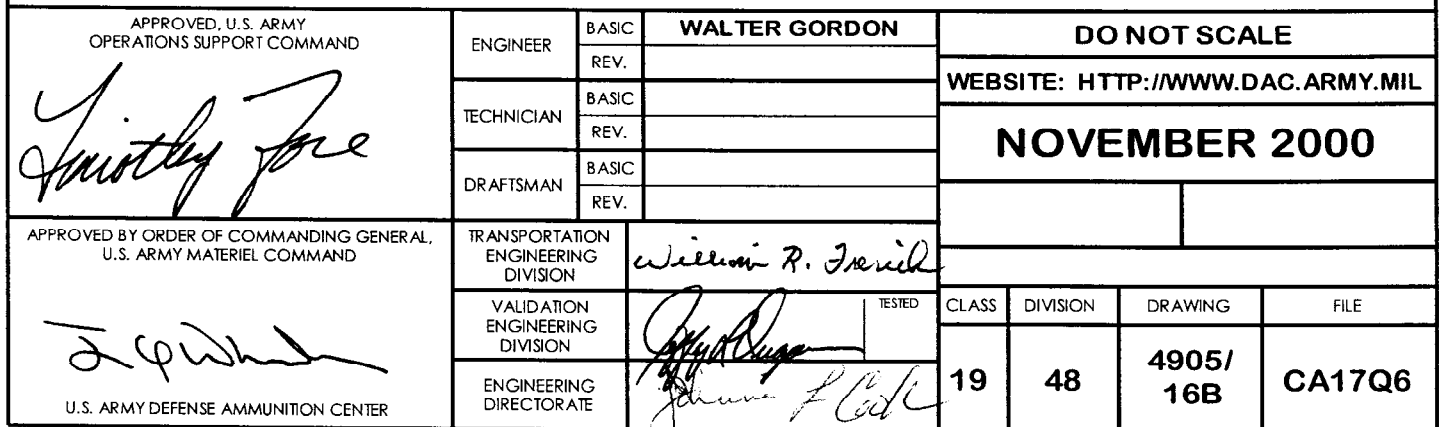 APPROVED, U.S. ARMY
OPERATIONS SUPPORT COMMAND
Timothy Fore
APPROVED BY ORDER OF COMMANDING GENERAL,
U.S. ARMY MATERIEL COMMAND
U.S. ARMY DEFENSE AMMUNITION CENTER
ENGINEER
BASIC
WALTER GORDON
REV.
TECHNICIAN
BASIC
REV.
DRAFTSMAN
BASIC
REV.
TRANSPORTATION
ENGINEERING
DIVISION
William R. Frerich
VALIDATION
ENGINEERING
DIVISION
TESTED
ENGINEERING
DIRECTORATE
DO NOT SCALE
WEBSITE: HTTP://WWW.DAC.ARMY.MIL
NOVEMBER 2000
CLASS DIVISION DRAWING FILE
19 48 4905/ CA17Q6
16B